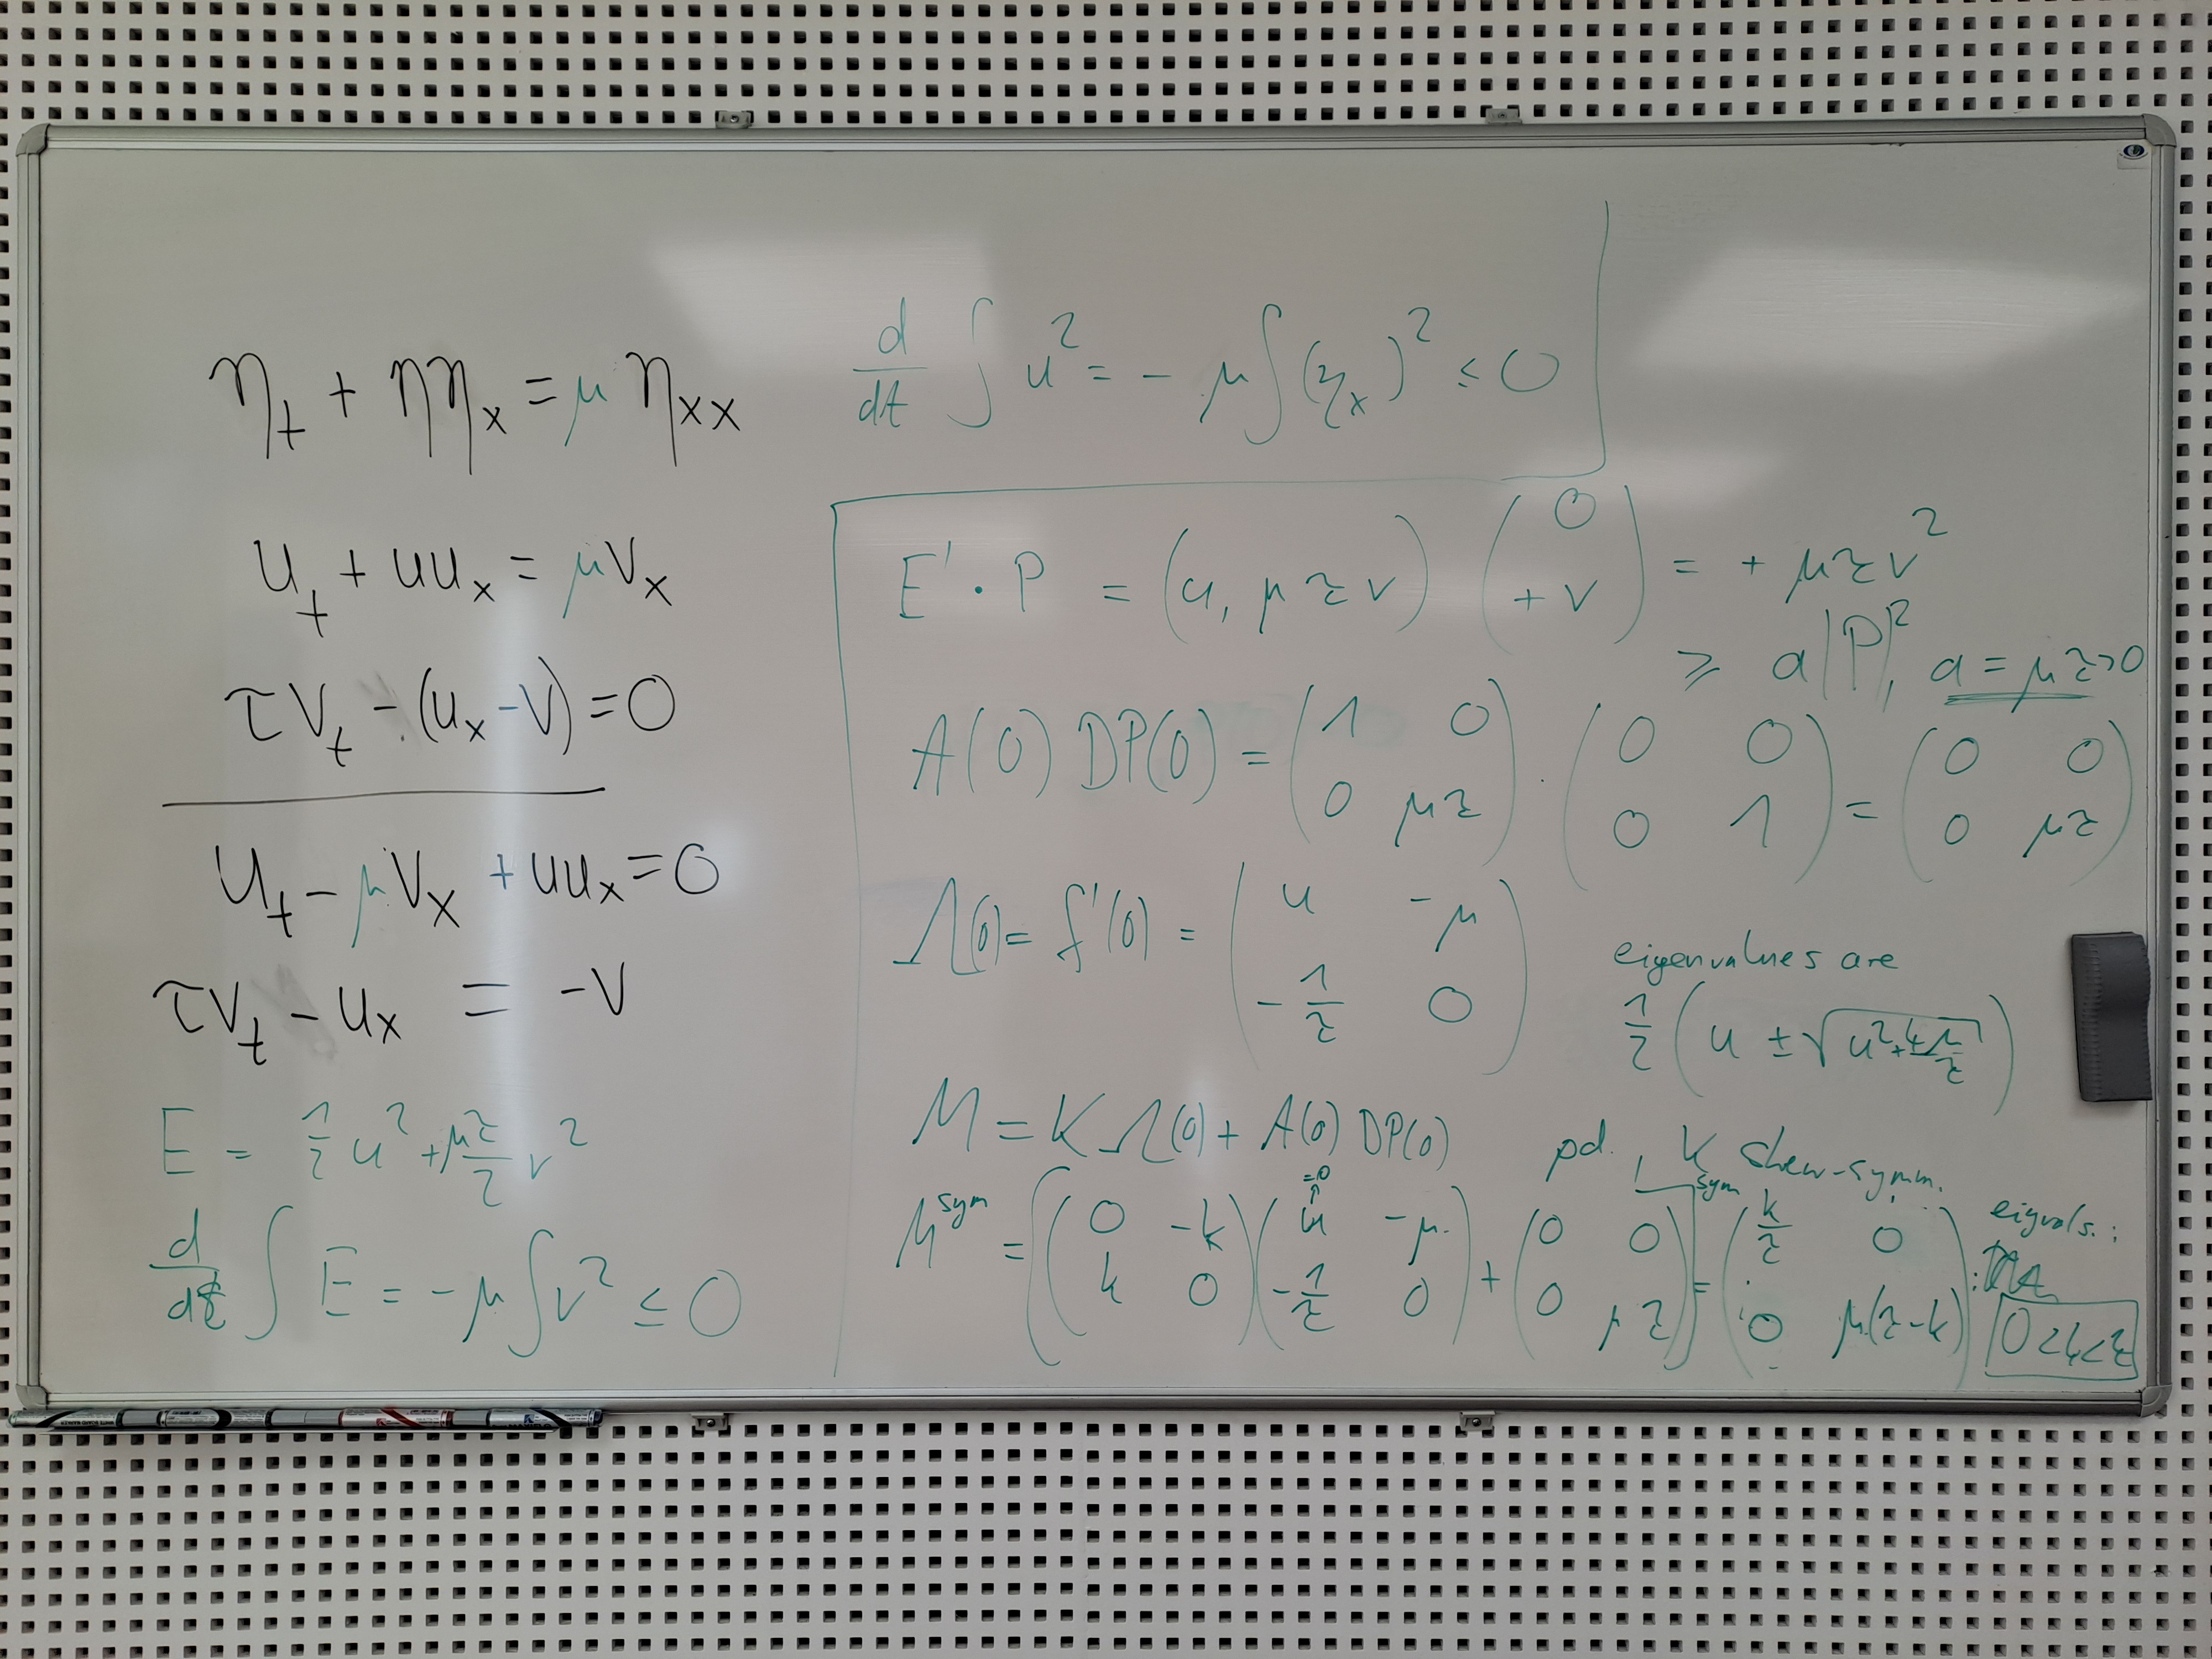 η_t + ηη_x = μ η_xx
u_t + uu_x = μv_x
τv_t - (u_x - v) = 0
u_t - μv_x + uu_x = 0
τv_t - u_x = -v
E = 1/2 u² + μτ/2 v²
d/dt ∫ E = -μ ∫ v² ≤ 0
d/dt ∫ u² = - μ ∫ (η_x)² ≤ 0
E' · P = (u, μτv) (0 ; +v) = + μτv²
≥ a|P|², a = μτ>0
A(0) DP(0) = (1 0 ; 0 μτ) · (0 0 ; 0 1) = (0 0 ; 0 μτ)
Λ(0) = f'(0) = (u -μ ; -1/τ 0)
eigenvalues are
1/2 (u ± √(u²+4μ/τ))
M = KΛ(0) + A(0) DP(0) pd., K skew-symm.
M^sym = ((0 -k ; k 0) (u -μ ; -1/τ 0) + (0 0 ; 0 μτ))^sym = (k/τ 0 ; 0 μ(τ-k))
=0
↑
eigvals.:
0<k<τ